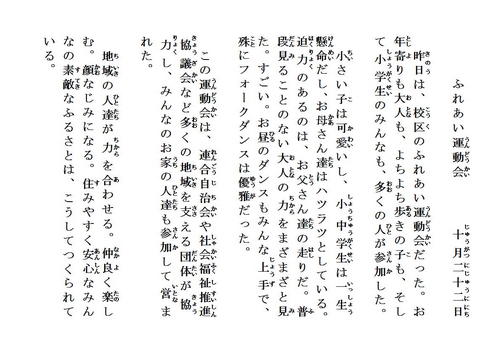 ふれあい運動会　十月二十二日
昨日は、校区のふれあい運動会だった。お
年寄りも大人も、よちよち歩きの子も、そし
て小学生のみんなも、多くの人が参加した。
小さい子は可愛いし、小中学生は一生
懸命だし、お母さん達はハツラツとしている。
迫力のあるのは、お父さん達の走りだ。普
段見ることのない大人の力をまざまざと見
た。すごい。お昼のダンスもみんな上手で、
殊にフォークダンスは優雅だった。
この運動会は、連合自治会や社会福祉推進
協議会など多くの地域を支える団体が協
力し、みんなのお家の人達も参加して営ま
れた。
地域の人達が力を合わせる。仲良く楽し
む。顔なじみになる。住みやすく安心なみん
なの素敵なふるさとは、こうしてつくられて
いる。